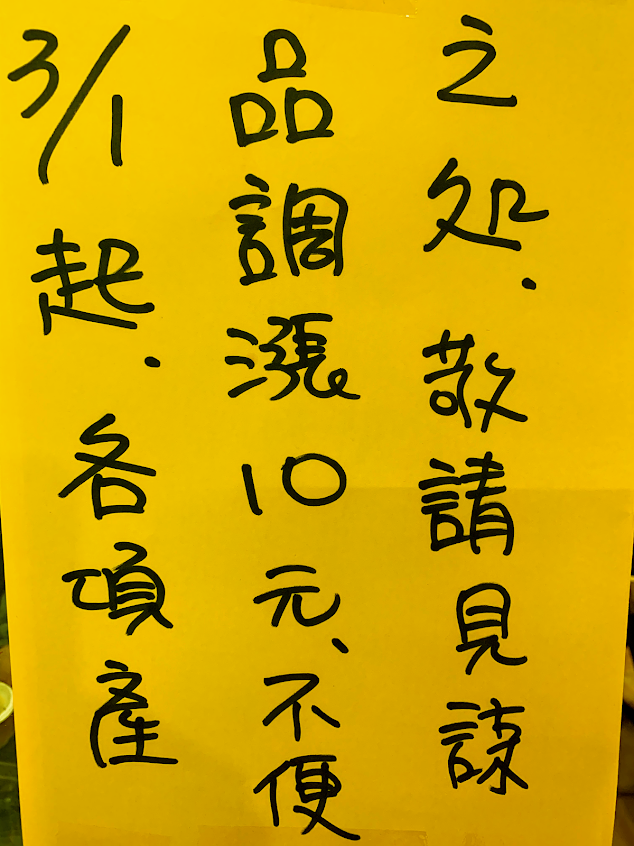 3/1起、各項產
品調漲10元、不便
之処、敬請見諒